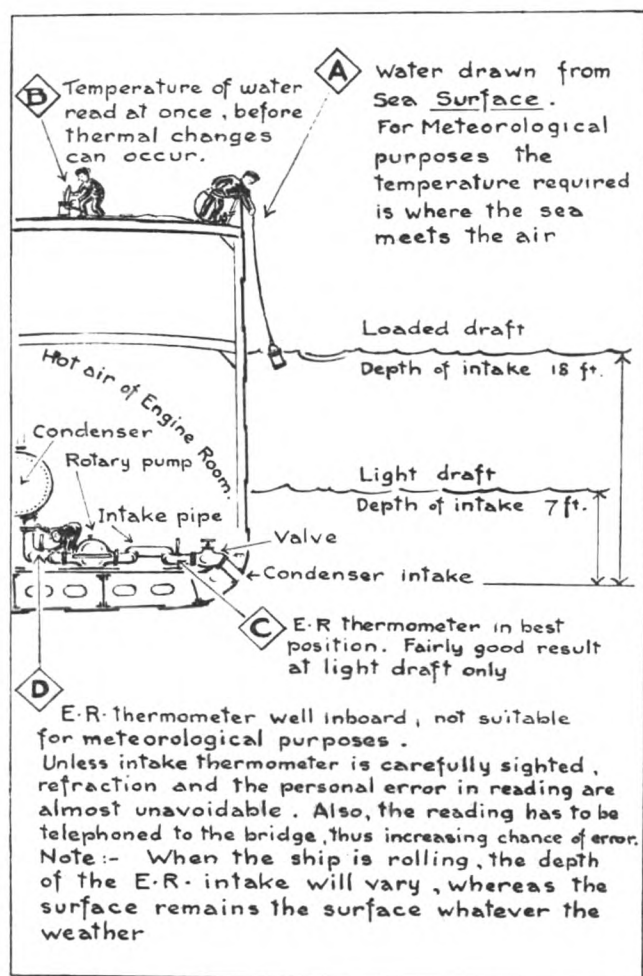 A
Water drawn from
Sea Surface.
For Meteorological
purposes the
temperature required
is where the sea
meets the air
B
Temperature of water
read at once, before
thermal changes
can occur.
Loaded draft
Depth of intake 18 ft.
Hot air of Engine Room.
Condenser
Rotary pump
Intake pipe
Light draft
Depth of intake 7 ft.
Valve
Condenser intake
C
E·R thermometer in best
position. Fairly good result
at light draft only
D
E·R· thermometer well inboard, not suitable
for meteorological purposes.
Unless intake thermometer is carefully sighted,
refraction and the personal error in reading are
almost unavoidable. Also, the reading has to be
telephoned to the bridge, thus increasing chance of error.
Note:- When the ship is rolling, the depth
of the E·R· intake will vary, whereas the
surface remains the surface whatever the
weather